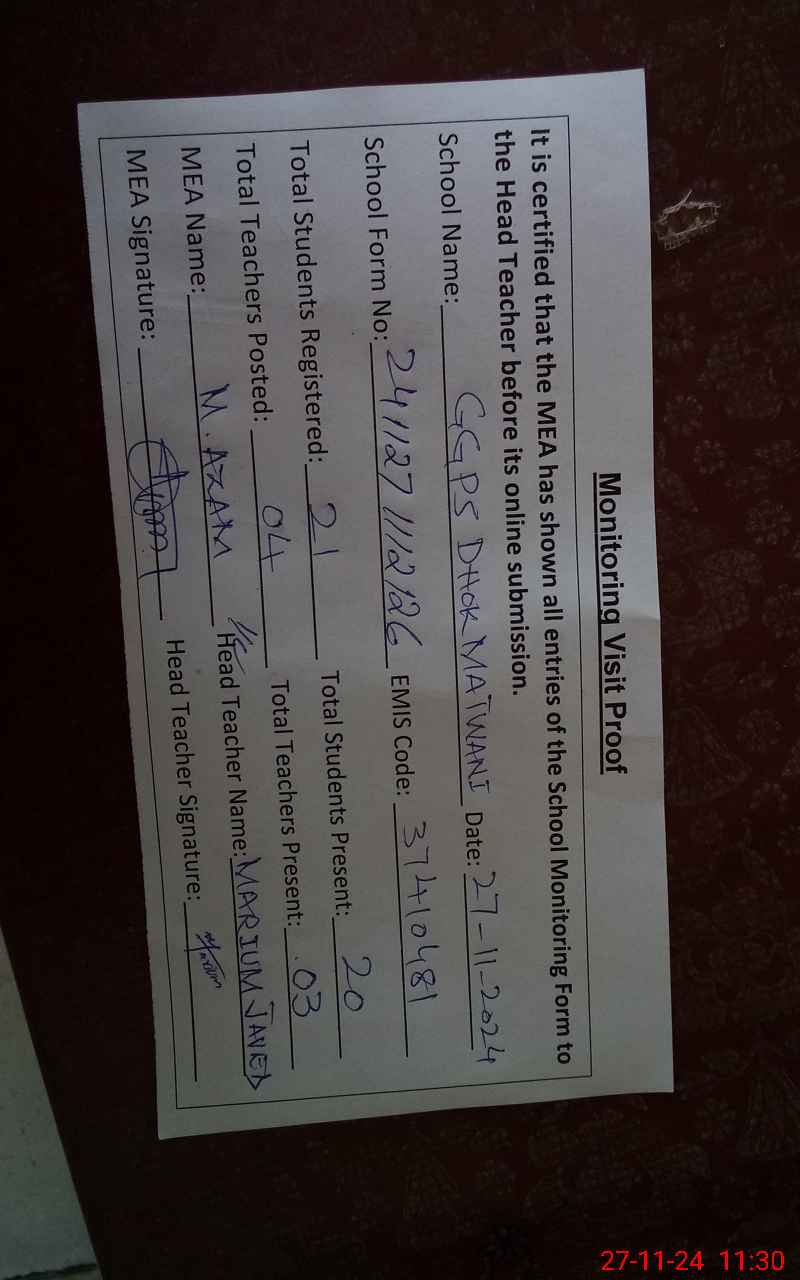 Monitoring Visit Proof
It is certified that the MEA has shown all entries of the School Monitoring Form to
the Head Teacher before its online submission.
School Name: GGPS DHOK MAIWANI Date: 27-11-2024
School Form No: 241127 1112126 EMIS Code: 37410481
Total Students Registered: 21 Total Students Present: 20
Total Teachers Posted: 04 Total Teachers Present: 03
MEA Name: M. AZAM I/C Head Teacher Name: MARIUM JAVED
MEA Signature: Head Teacher Signature: Marium
27-11-24 11:30